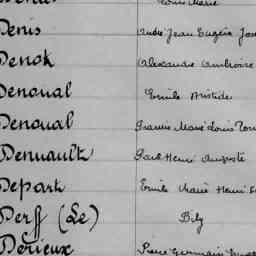 Denis André Jean Eugène
Denok Alexandre Ambroise
Denoual Emile Aristide
Denoual Francis Marie Louis
Denuault Paul Henri Auguste
Depark Emile Marie Henri
Derff (Le) Bily
Derieux Pierre Germain